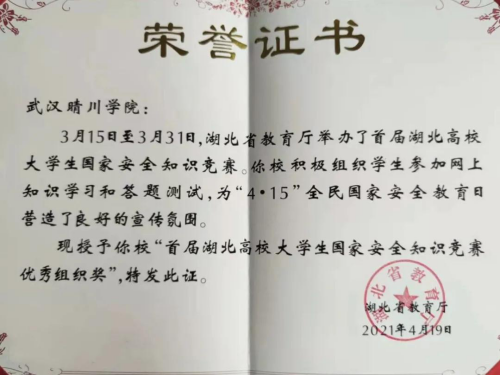 荣誉证书
武汉晴川学院：
3月15日至3月31日，湖北省教育厅举办了首届湖北高校
大学生国家安全知识竞赛。你校积极组织学生参加网上
知识学习和答题测试，为“4·15”全民国家安全教育日
营造了良好的宣传氛围。
现授予你校“首届湖北高校大学生国家安全知识竞赛
优秀组织奖”，特发此证。
湖北省教育厅
湖北省教育厅
2021年4月19日